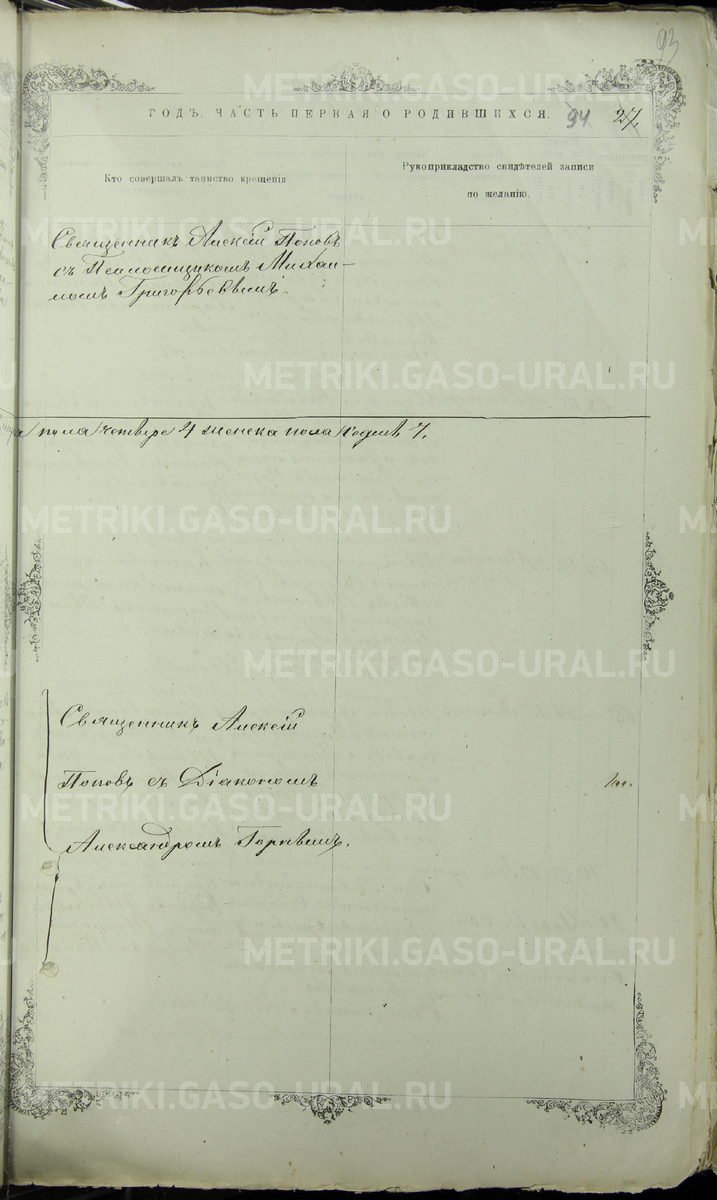 93
ГОДЪ, ЧАСТЬ ПЕРВАЯ О РОДИВШИХСЯ. 94 27,
Кто совершалъ таинство крещенія
Рукоприкладство свидѣтелей записи
по желанію.
Священникъ Алексій Поповъ
съ Псаломщикомъ Михаи-
ломъ Григорьевымъ.
пола четверо 4 женска пола седмь 7.
Священникъ Алексій
Поповъ съ Діакономъ
Александромъ
METRIKI.GASO-URAL.RU
METRIKI.GASO-URAL.RU
METRIKI.GASO-URAL.RU
METRIKI.GASO-URAL.RU
METRIKI.GASO-URAL.RU
METRIKI.GASO-URAL.RU
METRIKI.GASO-URAL.RU
METRIKI.GASO-URAL.RU